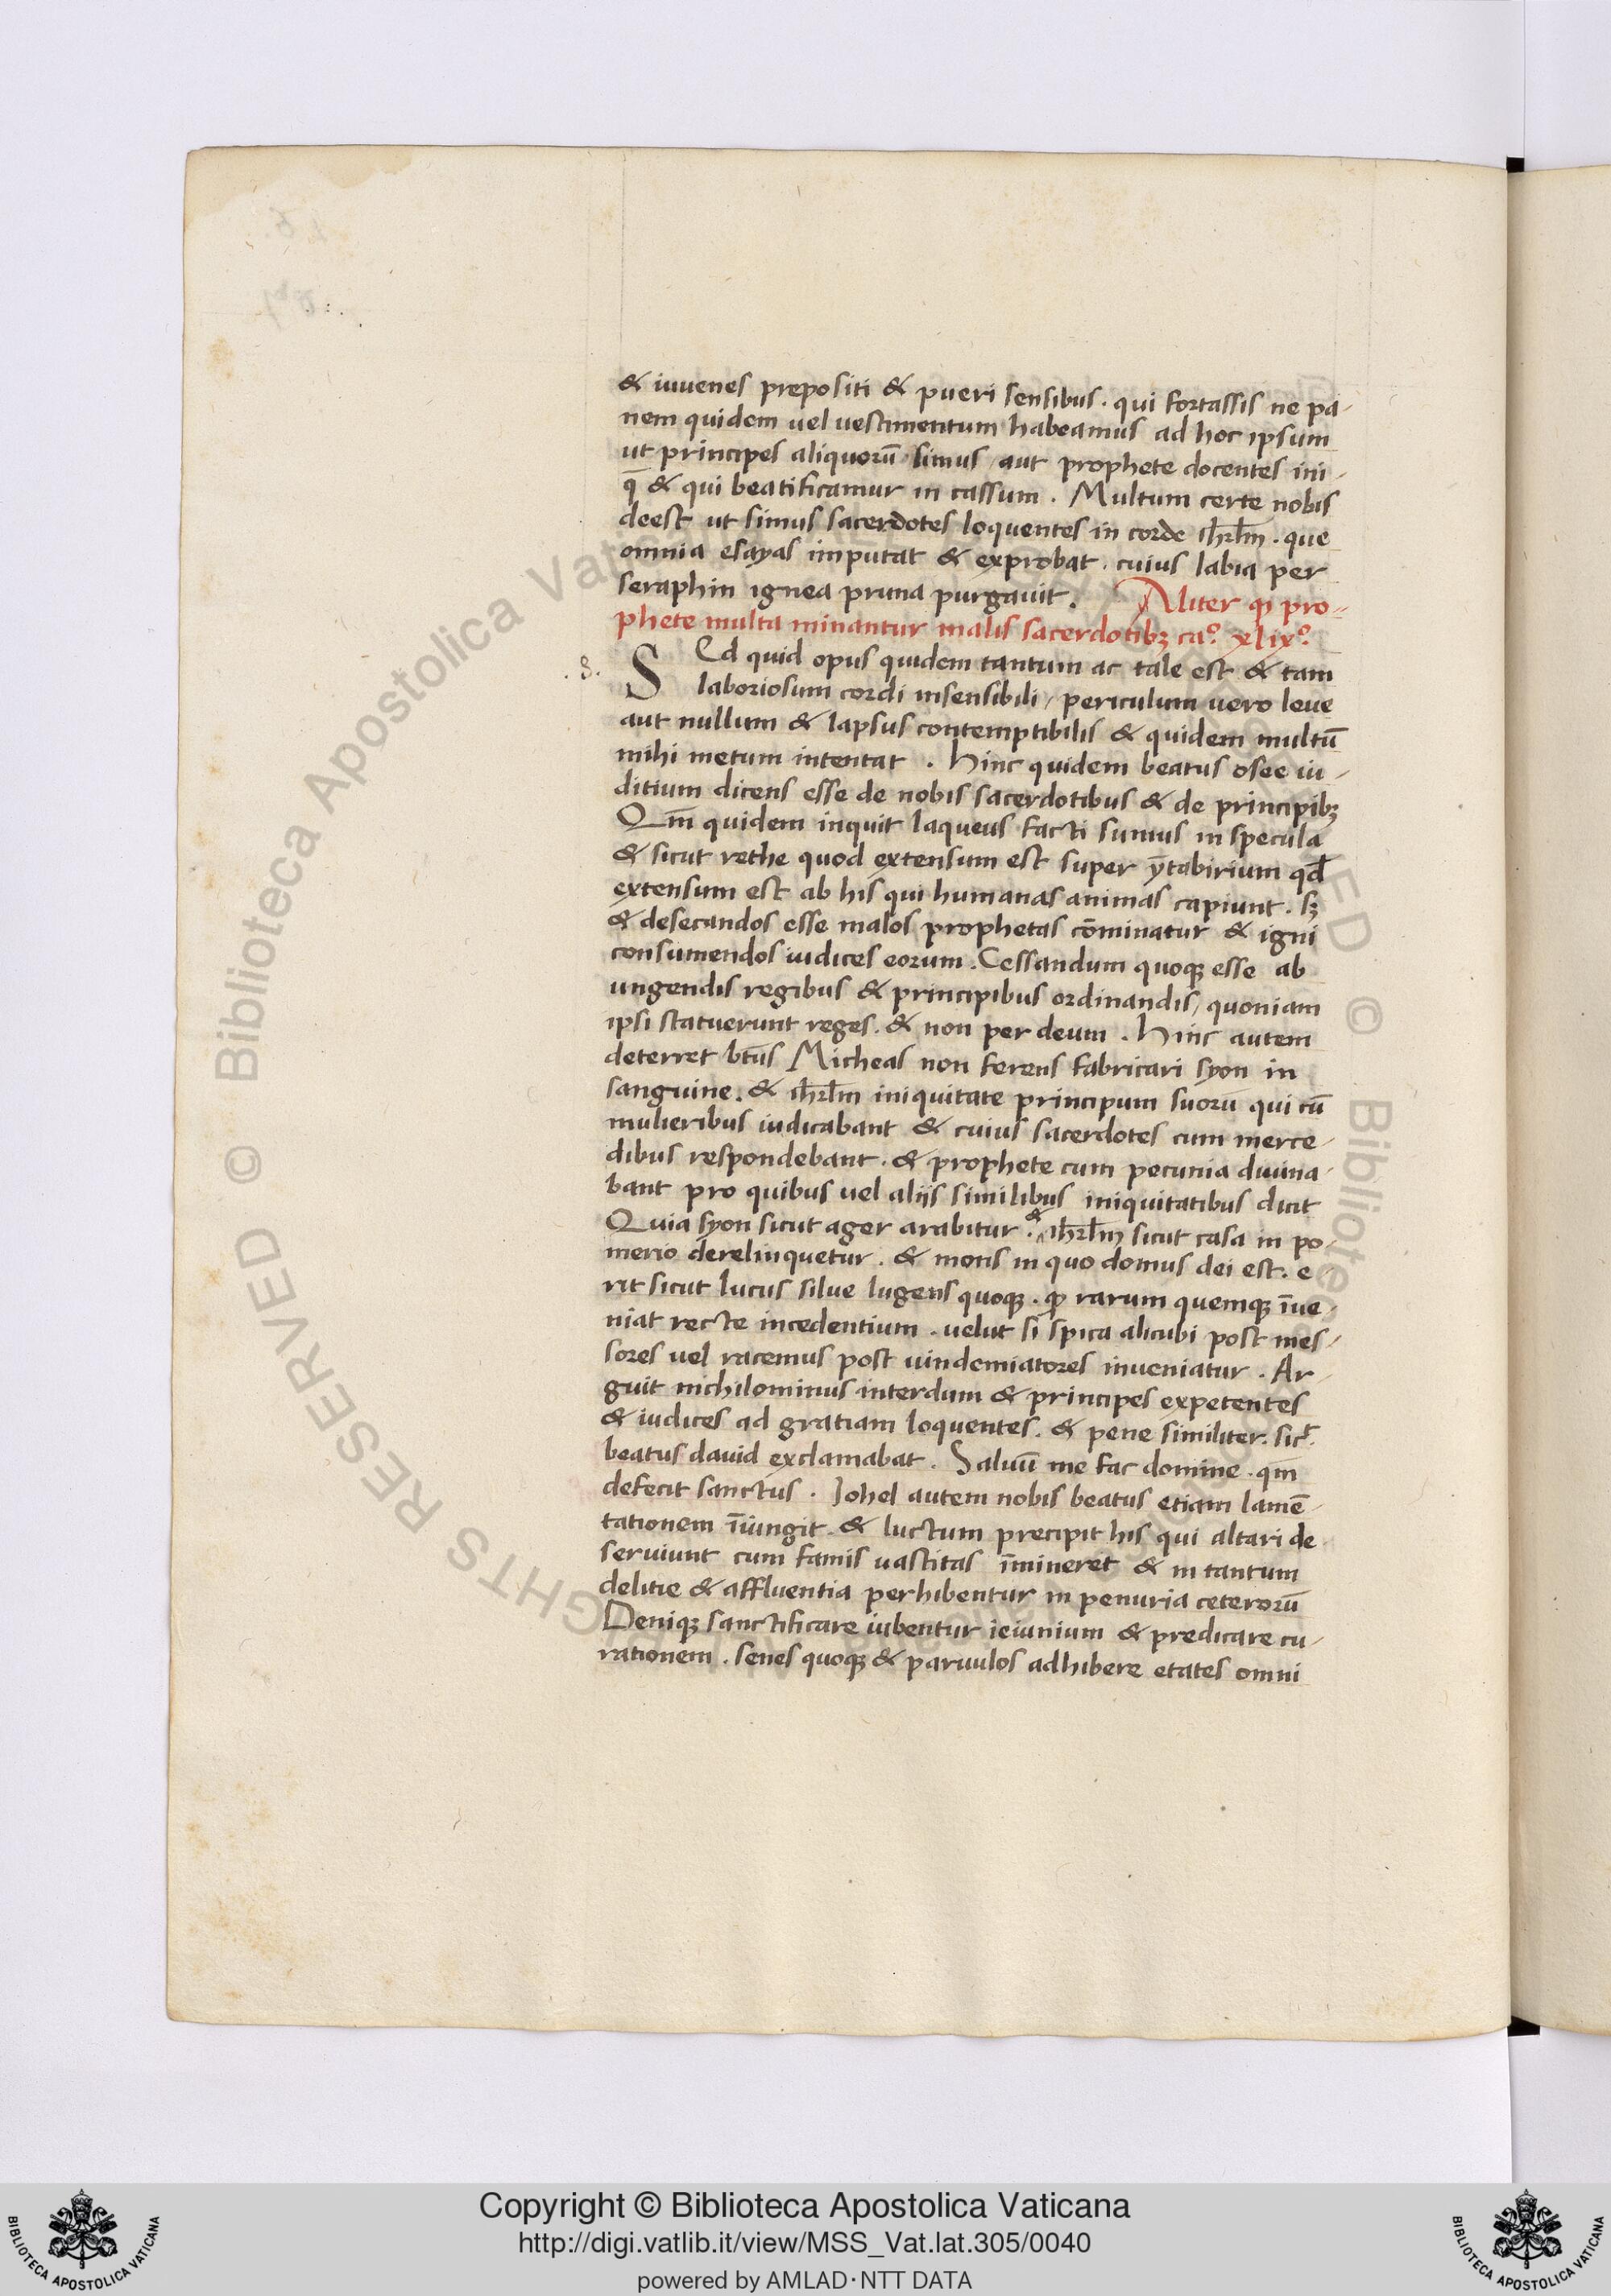 & iuvenes prepositi & pueri sensibus . qui fortassis ne pa-
nem quidem vel vestimentum habeamus ad hoc ipsum
ut principes aliquorū simus / aut prophete docentes ini-
q̄ & qui beatificamur in cassum . Multum certe nobis
deest ut simus sacerdotes loquentes in corde ihrl̄m . que
omnia esayas imputat & exprobat . cuius labia per
seraphin ignea pruna purgavit . Aliter ꝙ pro-
phete multa minantur malis sacerdotibꝫ ca° xlix°
. s .
SEd quid opus quidem tantum ac tale est & tam
laboriosum cordi insensibili / periculum vero leve
aut nullum & lapsus contemptibilis & quidem multū
mihi metum intentat . Hinc quidem beatus osee iu-
ditium dicens esse de nobis sacerdotibus & de principibꝫ
Qm̄ quidem inquit laqueus facti sumus in specula
& sicut rethe quod extensum est super ytabirium qđ
extensum est ab his qui humanas animas capiunt . sꝫ
& desecandos esse malos prophetas cōminatur & igni
consumendos iudices eorum . Cessandum quoqꝫ esse ab
ungendis regibus & principibus ordinandis / quoniam
ipsi statuerunt reges . & non per deum . Hinc autem
deterret bt̄us Micheas non ferens fabricari syon in
sanguine . & ihrl̄m iniquitate principum suorū qui cū
mulieribus iudicabant & cuius sacerdotes cum merce-
dibus respondebant . & prophete cum pecunia divina-
bant pro quibus vel aliis similibus iniquitatibus dicit
Quia syon sicut ager arabitur . & ihrl̄m sicut casa in po-
merio derelinquetur . & mons in quo domus dei est . e
rit sicut lucus silve lugens quoqꝫ . ꝙ rarum quemqꝫ īve-
niat recte incedentium . velut si spica alicubi post mes-
sores vel racemus post vindemiatores inveniatur . Ar-
guit nichilominus interdum & principes expetentes
& iudices ad gratiam loquentes . & pene similiter . sic̄
beatus david exclamabat . Salvū me fac domine . qm̄
defecit sanctus . Iohel autem nobis beatus etiam lamē-
tationem īiungit . & luctum precipit his qui altari de
serviunt cum famis vastitas īmineret & in tantum
delitie & affluentia perhibentur in penuria ceterorū
Deniqꝫ sanctificare iubentur ieiunium & predicare cu-
rationem . senes quoqꝫ & parvulos adhibere etates omni
Copyright © Biblioteca Apostolica Vaticana
http://digi.vatlib.it/view/MSS_Vat.lat.305/0040
powered by AMLAD·NTT DATA